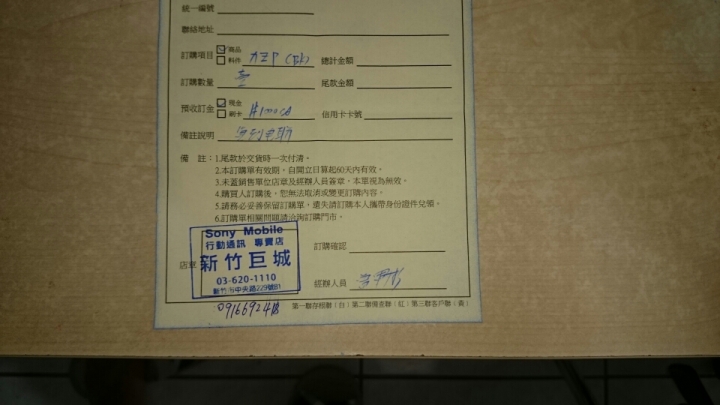 統一編號
聯絡地址
訂購項目 商品 料件 總計金額
訂購數量 壹 尾款金額
預收訂金 現金 刷卡 信用卡卡號
備註說明
備 註：1.尾款於交貨時一次付清。
2.本訂購單有效期，自開立日算起60天內有效。
3.未蓋銷售單位店章及經辦人員簽章，本單視為無效。
4.購買人訂購後，恕無法取消或變更訂購內容。
5.請務必妥善保留訂購單，遺失請訂購本人攜帶身份證件兌領。
6.訂購單相關問題請洽詢訂購門市。
Sony Mobile
行動通訊 專賣店
店章 新竹巨城
03-620-1110
新竹市中央路229號B1
訂購確認
經辦人員
第一聯存根聯（白）第二聯稽查聯（紅）第三聯客戶聯（黃）